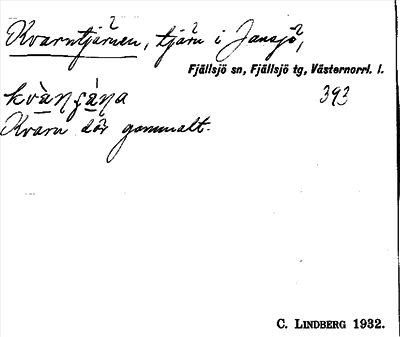 Kvarntjärnen, tjärn i Jansjö,
Fjällsjö sn, Fjällsjö tg, Västernorrl. l.
393
Kvarn där gammalt.
C. LINDBERG 1932.